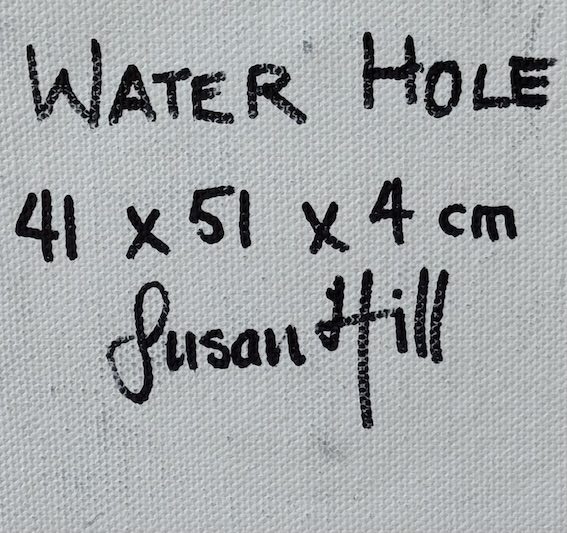 WATER HOLE
41 x 51 x 4 cm
Susan Hill